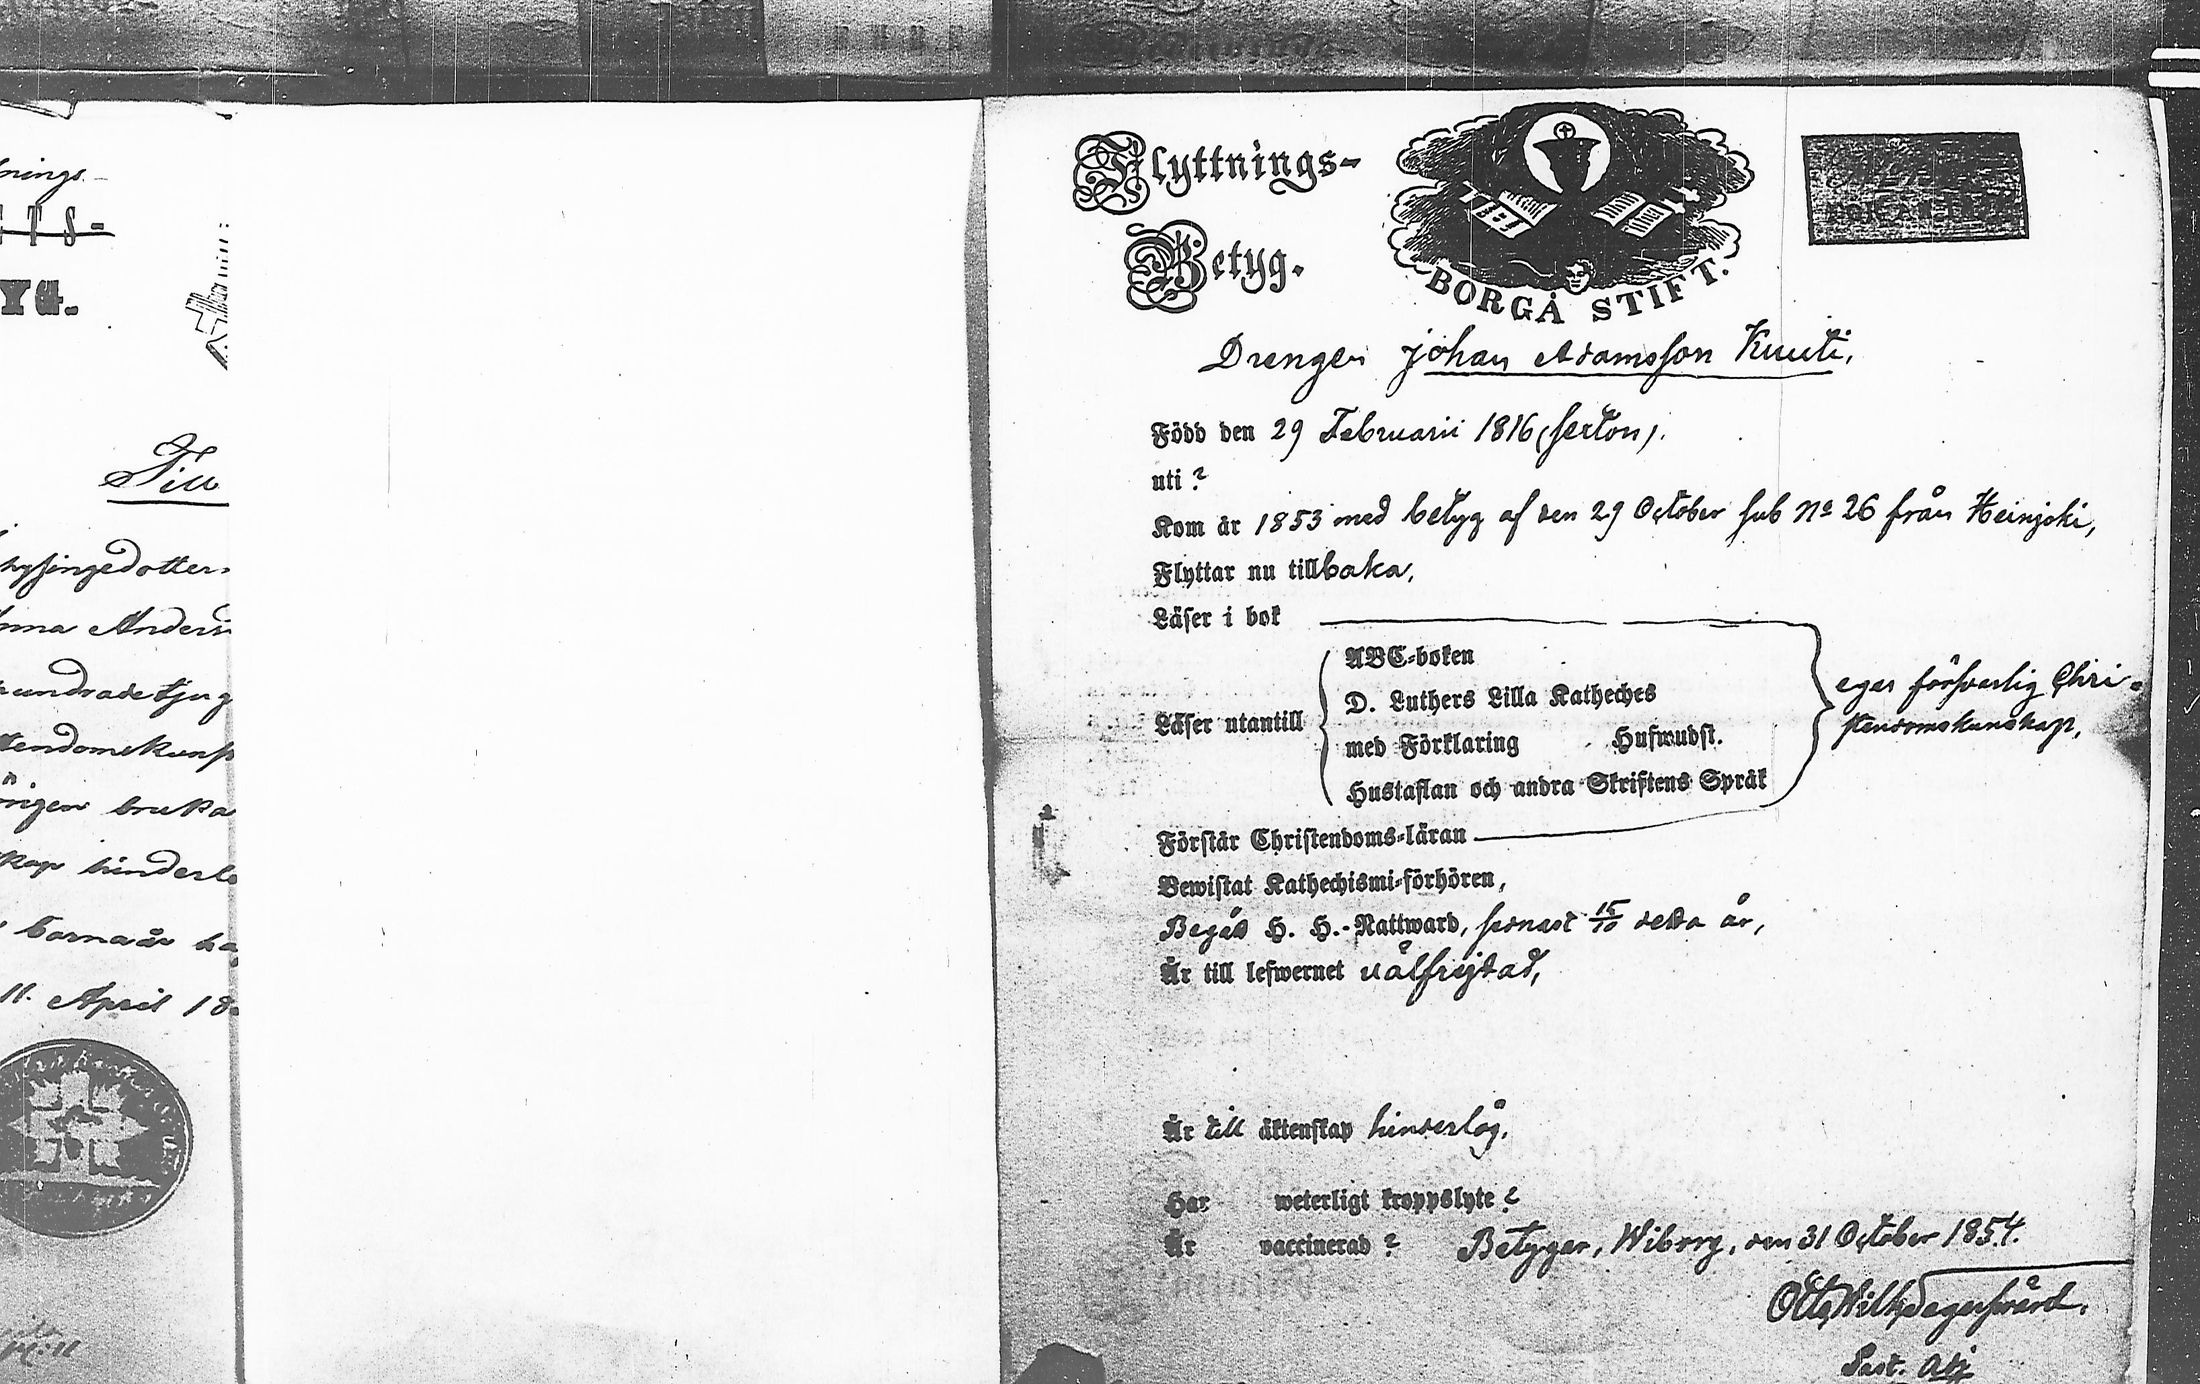 nings-
TS-
YG.
Till
hysingedotter
nna Anders
hundrade tjug
stendomskunsk
örigen bruka
skap hinderlö
barnaår ha
11. April 18
Flyttnings-
Betyg.
BORGÅ STIFT.
Drengen Johan Adamsson Kuuti,
Född den 29 Februarii 1816 (sexton).
uti ?
Kom år 1853 med betyg af den 29 October sub No 26 från Heinjoki,
Flyttar nu tillbaka,
Läser i bok
Läser utantill
ABC-boken
D. Luthers Lilla Katheches
med Förklaring Hufwudst.
Hustaflan och andra Skriftens Språk
eger försvarlig Chri-
stendomskunskap,
Förstår Christendoms-läran
Bewistat Kathechismi-förhören,
Begått H. H.-Nattward, sednast 15/10 detta år,
Är till lefwernet välfrejdad,
Är till äktenskap hinderlös,
Har weterligt kroppslyte ?
Är vaccinerad ? Betygar, Wiborg, den 31 October 1854.
Otto Wilh. Segerstråle.
Past. Adj